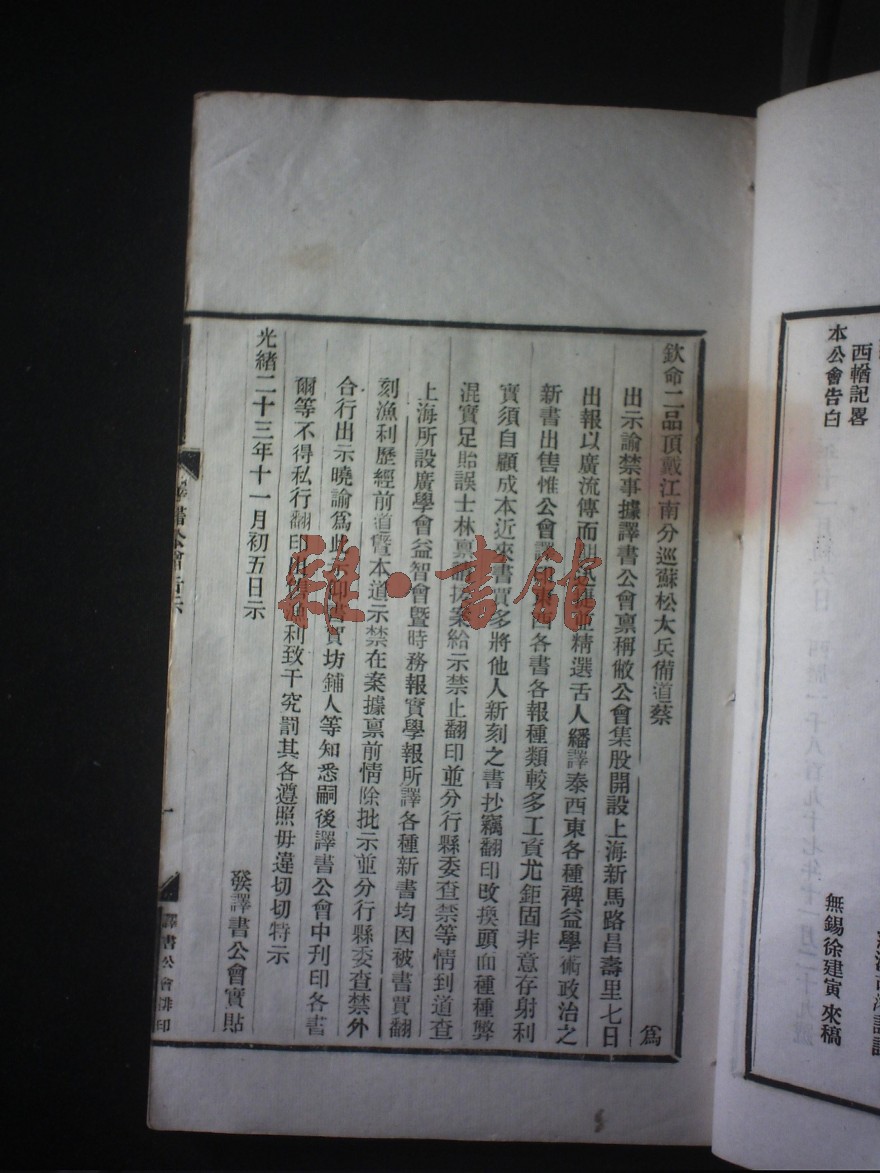 欽命二品頂戴江南分巡蘇松太兵備道蔡
爲
出示諭禁事據譯書公會禀稱敝公會集股開設上海新馬路昌壽里七日
出報以廣流傳而開風捷並精選舌人繙譯泰西東各種裨益學術政治之
新書出售惟公會譯印東西各書各報種類較多工資尤鉅固非意存射利
實須自顧成本近來書賈多將他人新刻之書抄竊翻印改換頭面種種弊
混實足貽誤士林禀請援案給示禁止翻印並分行縣委查禁等情到道查
上海所設廣學會益智會曁時務報實學報所譯各種新書均因被書賈翻
刻漁利歷經前道曁本道示禁在案據禀前情除批示並分行縣委查禁外
合行出示曉諭爲此示仰書賈坊鋪人等知悉嗣後譯書公會中刊印各書
爾等不得私行翻印漁利致干究罰其各遵照毋違切切特示
光緒二十三年十一月初五日示
發譯書公會實貼
譯書公會告示
一
譯書公會排印
西輶記畧
無錫徐建寅來稿
本公會告白
雜·書館